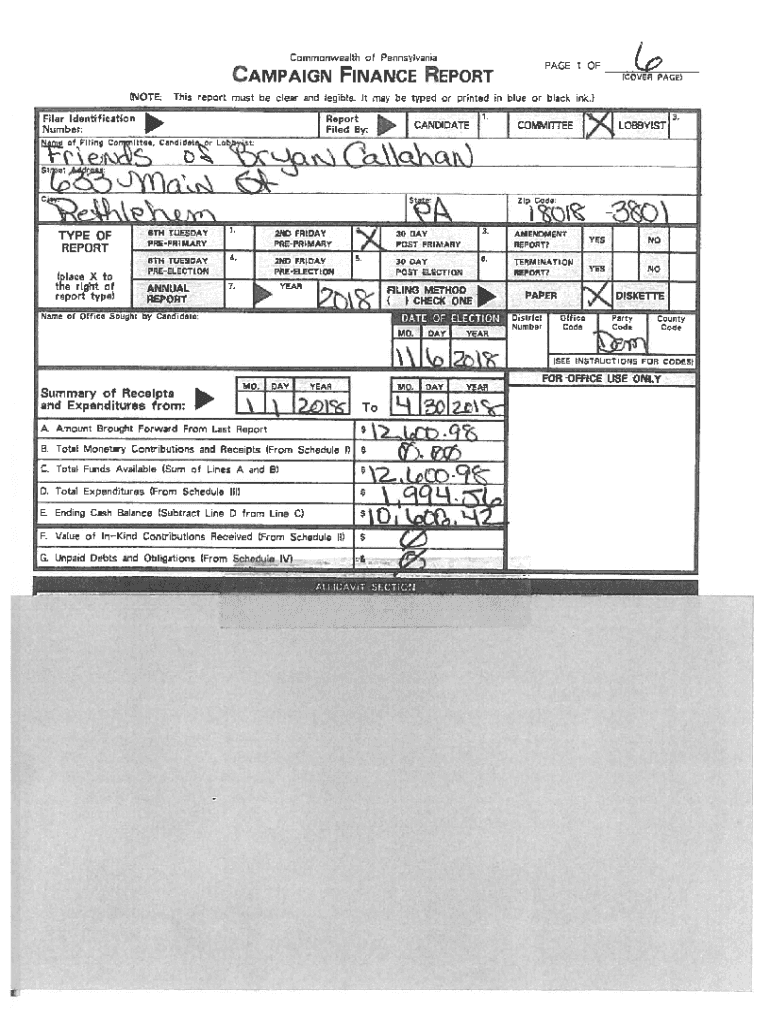 Commonwealth of Pennsylvania
CAMPAIGN FINANCE REPORT
PAGE 1 OF 6
(COVER PAGE)
(NOTE: This report must be clear and legible. It may be typed or printed in blue or black ink.)
Filer Identification Number:
Report Filed By:
CANDIDATE 1.
COMMITTEE X
LOBBYIST 3.
Name of Filing Committee, Candidate or Lobbyist:
Friends of Bryan Callahan
Street Address:
633 Main St
City:
Bethlehem
State:
PA
Zip Code:
18018 -3801
TYPE OF REPORT
(place X to the right of report type)
6TH TUESDAY PRE-PRIMARY 1.
2ND FRIDAY PRE-PRIMARY X
30 DAY POST PRIMARY 3.
AMENDMENT REPORT? YES NO
6TH TUESDAY PRE-ELECTION 4.
2ND FRIDAY PRE-ELECTION 5.
30 DAY POST ELECTION 6.
TERMINATION REPORT? YES NO
ANNUAL REPORT 7.
YEAR 2018
FILING METHOD ( ) CHECK ONE
PAPER X
DISKETTE
Name of Office Sought by Candidate:
DATE OF ELECTION
MO. DAY YEAR
11 6 2018
District Number
Office Code
Party Code
Dem
County Code
(SEE INSTRUCTIONS FOR CODES)
Summary of Receipts and Expenditures from:
MO. DAY YEAR
1 1 2018
To
MO. DAY YEAR
4 30 2018
FOR OFFICE USE ONLY
A. Amount Brought Forward From Last Report $ 12,600.98
B. Total Monetary Contributions and Receipts (From Schedule I) $ 00.00
C. Total Funds Available (Sum of Lines A and B) $ 12,600.98
D. Total Expenditures (From Schedule III) $ 1,994.56
E. Ending Cash Balance (Subtract Line D from Line C) $ 10,606.42
F. Value of In-Kind Contributions Received (From Schedule II) $ 0
G. Unpaid Debts and Obligations (From Schedule IV) $ 0
AFFIDAVIT SECTION